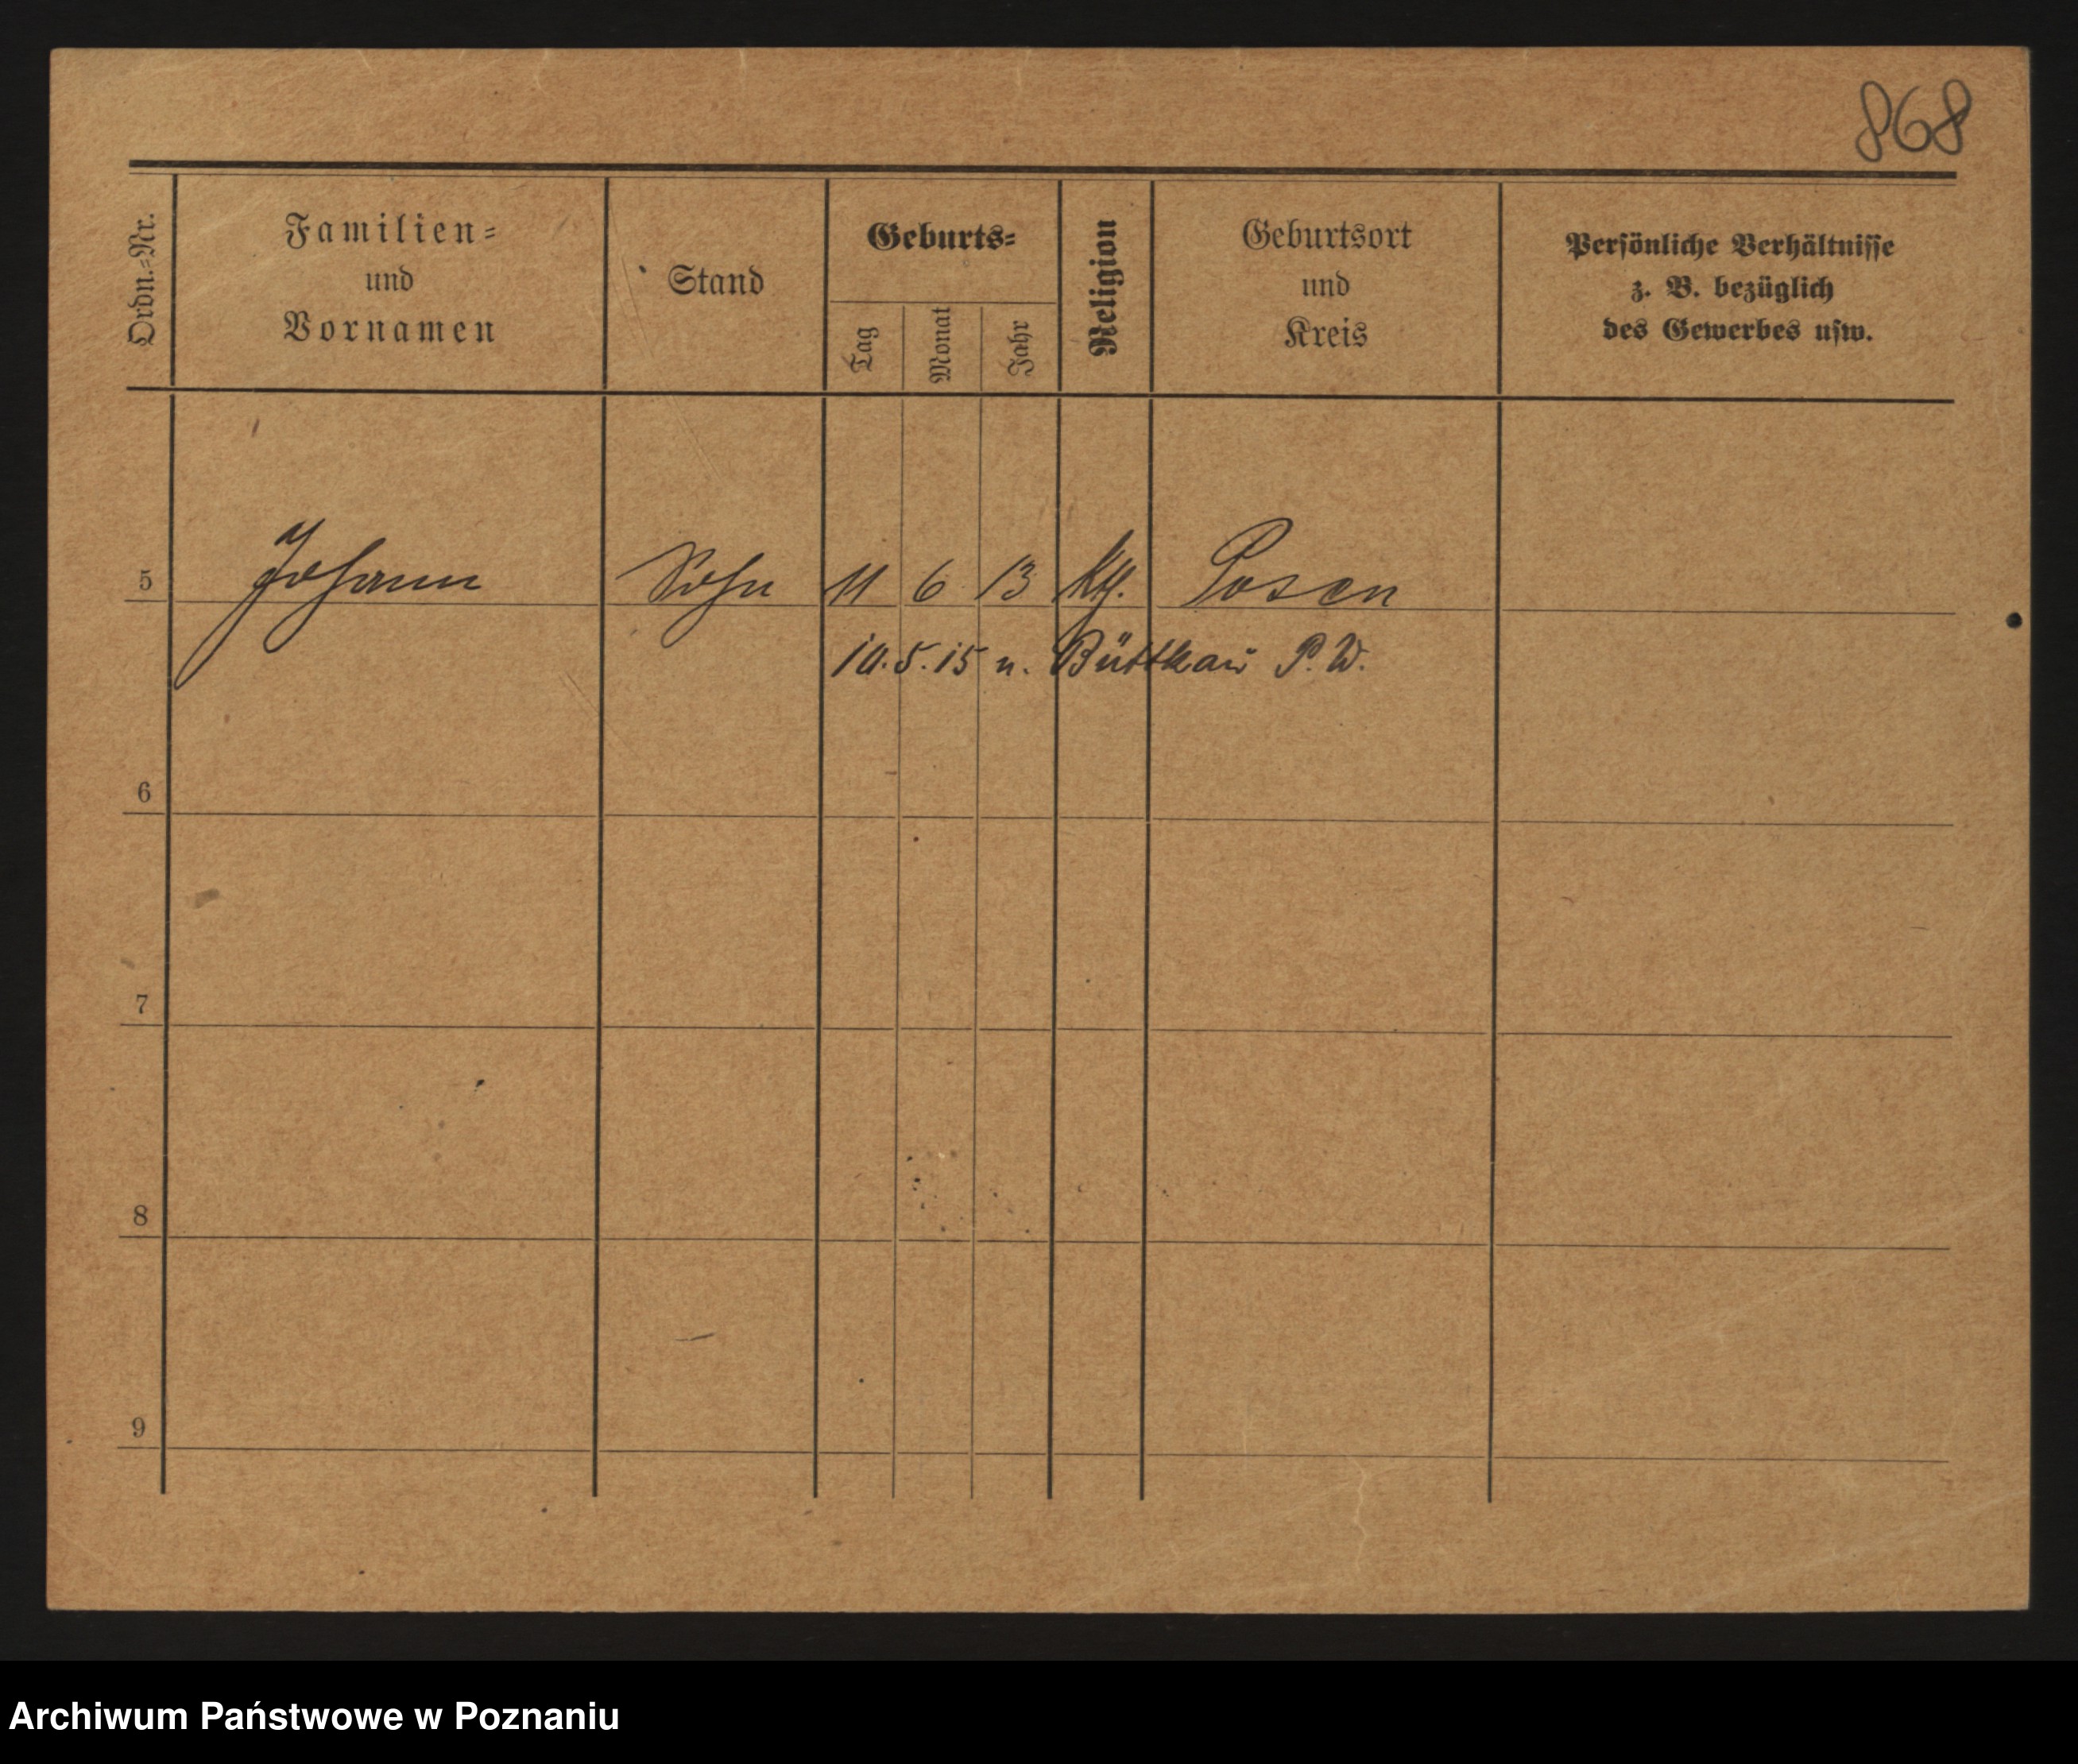 868
Ordn.-Nr.
Familien-
und
Vornamen
Stand
Geburts-
Tag
Monat
Jahr
Religion
Geburtsort
und
Kreis
Persönliche Verhältnisse
z. B. bezüglich
des Gewerbes usw.
5 Johann Sohn 11 6 13 Posen
10.5.15 n. P. W.
6
7
8
9
Archiwum Państwowe w Poznaniu